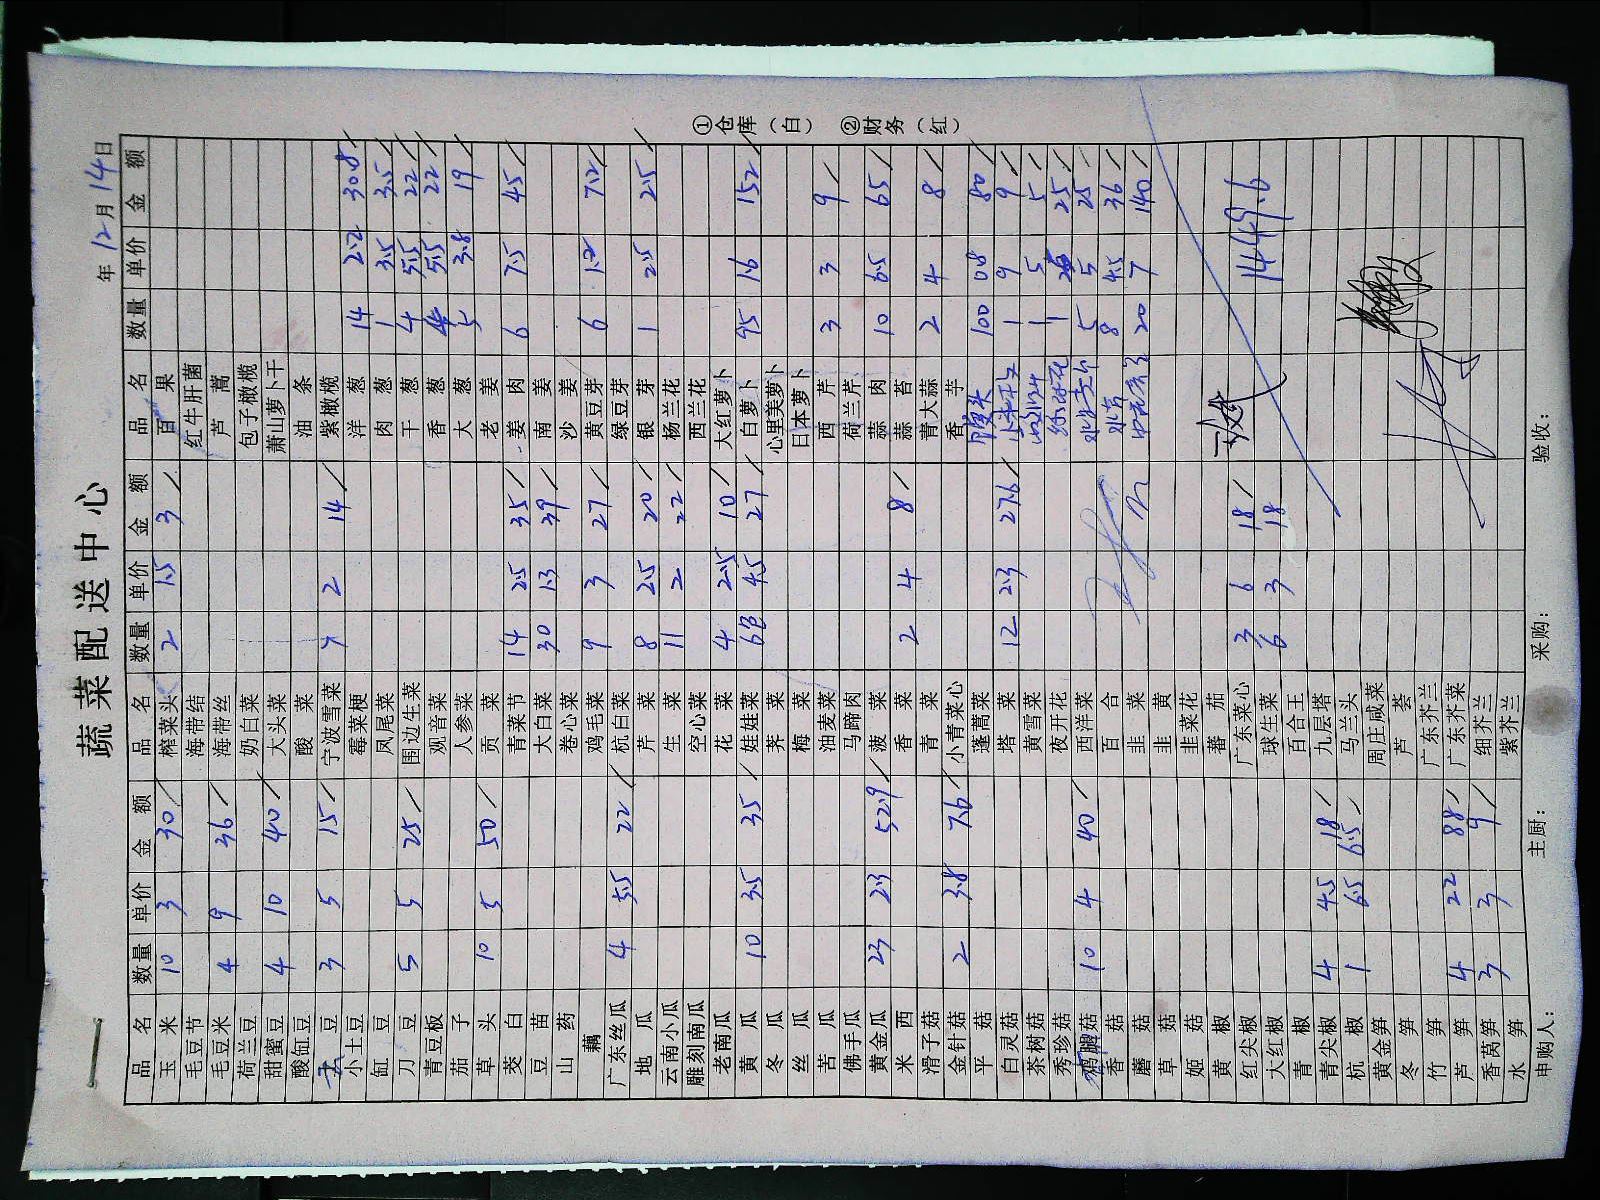 蔬菜配送中心
年 12月 14日
品名 数量 单价 金额 品名 数量 单价 金额 品名 数量 单价 金额
玉米 10 3 30 榨菜头 2 1.5 3 百果
毛豆节 海带结 红牛肝菌
毛豆米 4 9 36 海带丝 芦蒿
荷兰豆 奶白菜 包子橄榄
甜蜜豆 4 10 40 大头菜 萧山萝卜干
酸缸豆 酸菜 油条
豆 3 5 15 宁波雪菜 7 2 14 紫橄榄
小土豆 霉菜梗 洋葱 14 2.2 30.8
缸豆 凤尾菜 肉葱 1 3.5 3.5
刀豆 5 5 25 围边生菜 干葱 4 5.5 22
青豆板 观音菜 香葱 4 5.5 22
茄子 人参菜 大葱 5 3.8 19
草头 10 5 50 贡菜 老姜
茭白 青菜节 14 2.5 35 姜肉 6 7.5 45
豆苗 大白菜 30 1.3 39 南姜
山药 卷心菜 沙姜
藕 鸡毛菜 9 3 27 黄豆芽 6 1.2 7.2
广东丝瓜 4 5.5 22 杭白菜 绿豆芽
地瓜 芹菜 8 2.5 20 银芽 1 2.5 2.5
云南小瓜 生菜 11 2 22 杨兰花
雕刻南瓜 空心菜 西兰花
老南瓜 花菜 4 2.5 10 大红萝卜
黄瓜 10 3.5 35 娃娃菜 6包 4.5 27 白萝卜 95 1.6 152
冬瓜 荠菜 心里美萝卜
丝瓜 梅菜 日本萝卜
苦瓜 油麦菜 西芹 3 3 9
佛手瓜 马蹄肉 荷兰芹
黄金瓜 23 2.3 52.9 菠菜 蒜肉 10 6.5 65
米西 香菜 2 4 8 蒜苔
滑子菇 青菜 青大蒜 2 4 8
金针菇 2 3.8 7.6 小青菜心 香芋
平菇 蓬蒿菜 馒头 100 0.8 80
白灵菇 塔菜 12 2.3 27.6 1 9 9
茶树菇 黄雪菜 1 5 5
秀珍菇 夜开花 1 25 25
鸡腿菇 10 4 40 西洋菜 5 5 25
香菇 百合 8 4.5 36
蘑菇 韭菜 20 7 140
草菇 韭黄
姬菇 韭菜花
黄椒 蕃茄
红尖椒 广东菜心 3 6 18 1449.6
大红椒 球生菜 6 3 18
青椒 百合王
青尖椒 4 4.5 18 九层塔
杭椒 1 6.5 6.5 马兰头
黄金笋 周庄咸菜
冬笋 芦荟
竹笋 广东芥兰
芦笋 4 22 88 广东芥菜
香莴笋 3 3 9 细芥兰
水笋 紫芥兰
申购人: 主厨: 采购: 验收:
①仓库（白） ②财务（红）